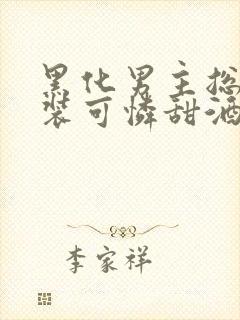 黑化男主总
装可怜甜酒
李家祥